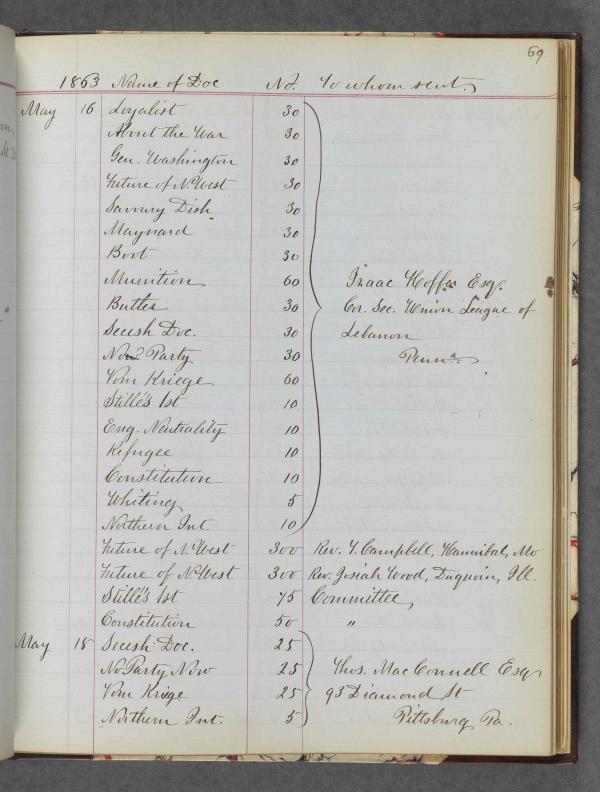 69
1863 Name of Doc No. To whom sent.
May 16 Loyalist 30
About the War 30
Gen. Washington 30
Future of N. West 30
Savoury Dish 30
Maynard 30
Boot 30
Munition 60 Isaac Hoffer Esq.
Butler 30 Cor. Sec. Union League of
Secesh Doc. 30 Lebanon
Party 30 Penna.
Vom Kriege 60
Stillé's 1st 10
Eng. Neutrality 10
Refugee 10
Constitution 10
Whiting 5
Northern Int. 10
Future of N. West 300 Rev. Y. Campbell, Hannibal, Mo
Future of N. West 300 Rev. Josiah Wood, Duquoin, Ill.
Stillé's 1st 75 Committee,
Constitution 50 "
May 18 Secesh Doc. 25
No Party Now 25 Thos. MacConnell Esq.
Vom Kriege 25 93 Diamond St
Northern Int. 5 Pittsburg, Pa.